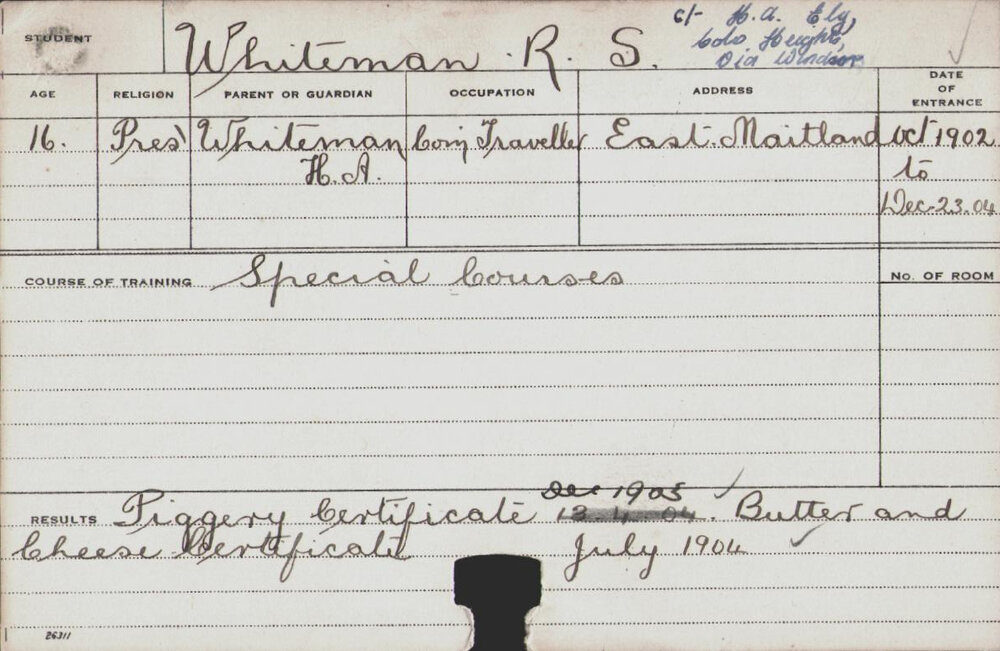 c/- H. A. Ely,
Colo Heights,
Via Windsor
STUDENT Whiteman R. S.
AGE RELIGION PARENT OR GUARDIAN OCCUPATION ADDRESS DATE OF ENTRANCE
16. Pres Whiteman Com Traveller East. Maitland Oct 1902
H. A. to
Dec. 23. 04
COURSE OF TRAINING Special Courses No. OF ROOM
Dec 1905
RESULTS Piggery Certificate 13. 4. 04. Butter and
Cheese Certificate July 1904
26311